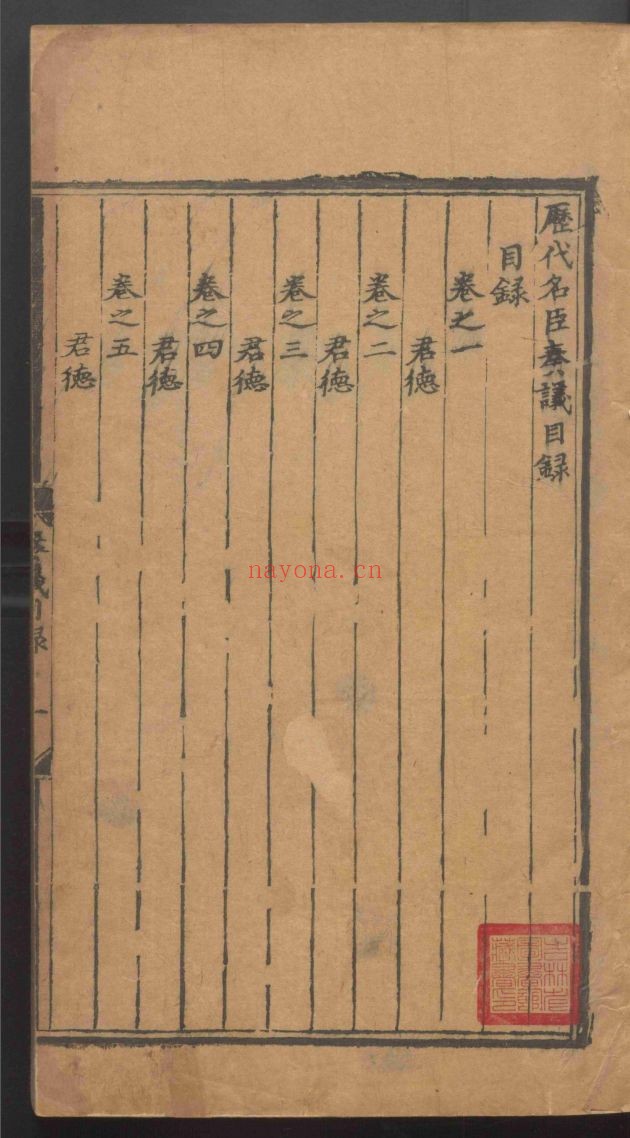 歷代名臣奏議目録
目録
卷之一
君德
卷之二
君德
卷之三
君德
卷之四
君德
卷之五
君德
nayona.cn